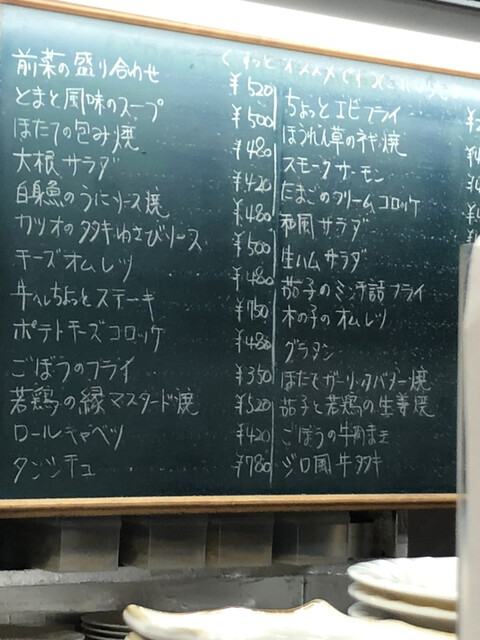 前菜の盛り合わせ ¥520
とまと風味のスープ ¥500
ほたての包み焼 ¥480
大根サラダ ¥420
白身魚のうにソース焼 ¥480
カツオのタタキわさびソース ¥500
チーズオムレツ ¥480
牛ヘレちょっとステーキ ¥750
ポテトチーズコロッケ ¥480
ごぼうのフライ ¥350
若鶏の緑マスタード焼 ¥520
ロールキャベツ ¥420
タンシチュ ¥780
ちょっとエビフライ
ほうれん草のネギ焼
スモークサーモン
たまごのクリームコロッケ
和風サラダ
生ハムサラダ
茄子のミンチ詰フライ
木の子のオムレツ
グラタン
ほたてガーリックバター焼
茄子と若鶏の生姜焼
ごぼうの牛肉まき
ジロ風牛タタキ